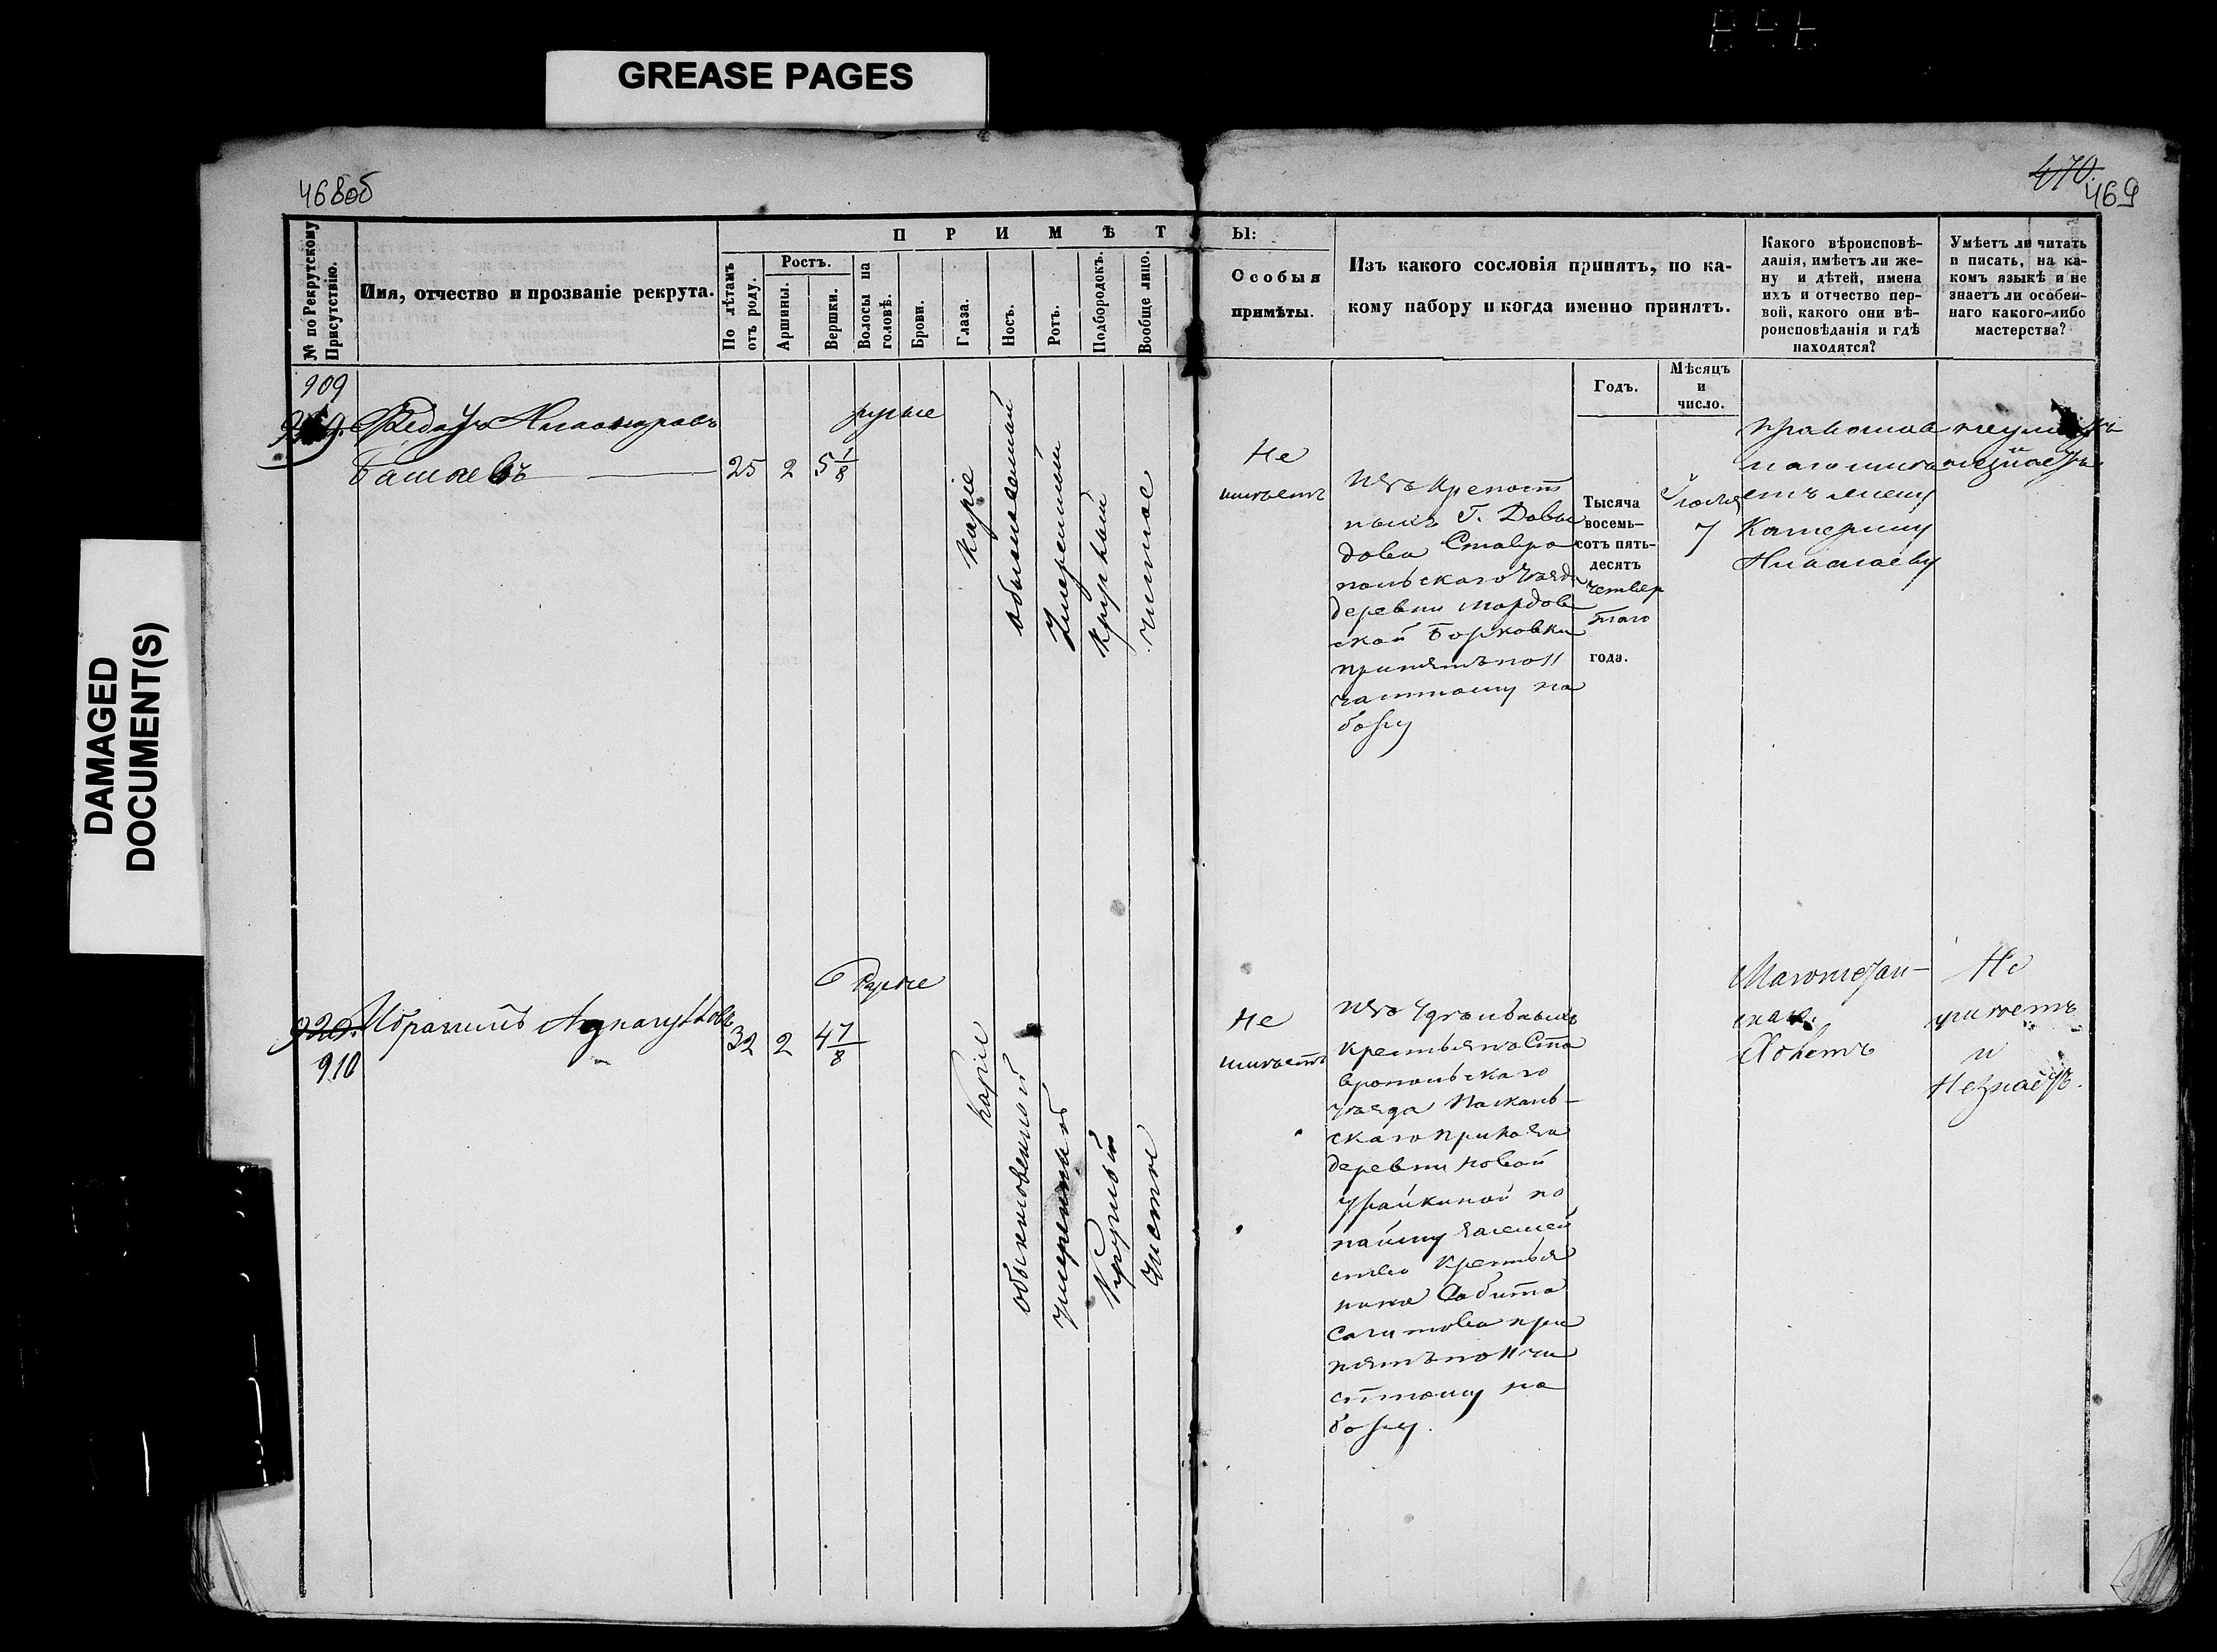 GREASE PAGES
DAMAGED
DOCUMENT(S)
468об
470.
469
№ по Рекрутскому
Присутствію.
Имя, отчество и прозваніе рекрута.
ПРИМѢТЫ:
По лѣтамъ
отъ роду.
Ростъ.
Аршины.
Вершки.
Волосы на
головѣ.
Брови.
Глаза.
Носъ.
Ротъ.
Подбородокъ.
Вообще лицо.
Особыя
примѣты.
Изъ какого сословія принятъ, по ка-
кому набору и когда именно принятъ.
Какого вѣроисповѣ-
данія, имѣетъ ли же-
ну и дѣтей, имена
ихъ и отчество пер-
вой, какого они вѣ-
роисповѣданія и гдѣ
находятся?
Умѣетъ ли читать
и писать, на ка-
комъ языкѣ и не
знаетъ ли особен-
наго какого-либо
мастерства?
Годъ.
Мѣсяцъ
и
число.
909
Федоръ
25
2
5 1/8
русые
Каріе
обыкновенный
Умеренный
круглый
чистое
Не
имѣетъ
Изъ крепост
ныхъ Г. Давы
дова Ставро
польскаго Уѣзда
деревни Мордов
ской Борковки
принятъ по 11
частному на
бору
Тысяча
восемь-
сотъ пять-
десятъ
четвер
таго
года.
7
Катерину
Николаеву
920.
910
Ибрагимъ
32
2
4 7/8
Русые
Каріе
обыкновенный
умеренный
Круглый
Чистое
Не
имѣетъ
Изъ Удѣльныхъ
крестьянъ Ста
вропольскаго
Уѣзда
скаго приказа
деревни новой
Урайкиной по
найму
крестья
нина Сабита
Сагитова при
нятъ по 11 ча
стному на
бору.
Магометан-
скаго.
Холостъ
Не
умѣетъ
и
Незнаетъ.